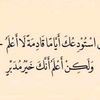 اسْتَوْدَعَكَ أَيَّامًا قَادِمَةً لَا أَعْلَمُ
وَلَكِنْ أَعْلَمُ أَنَّكَ خَيْرُ مُدَبِّرٍ